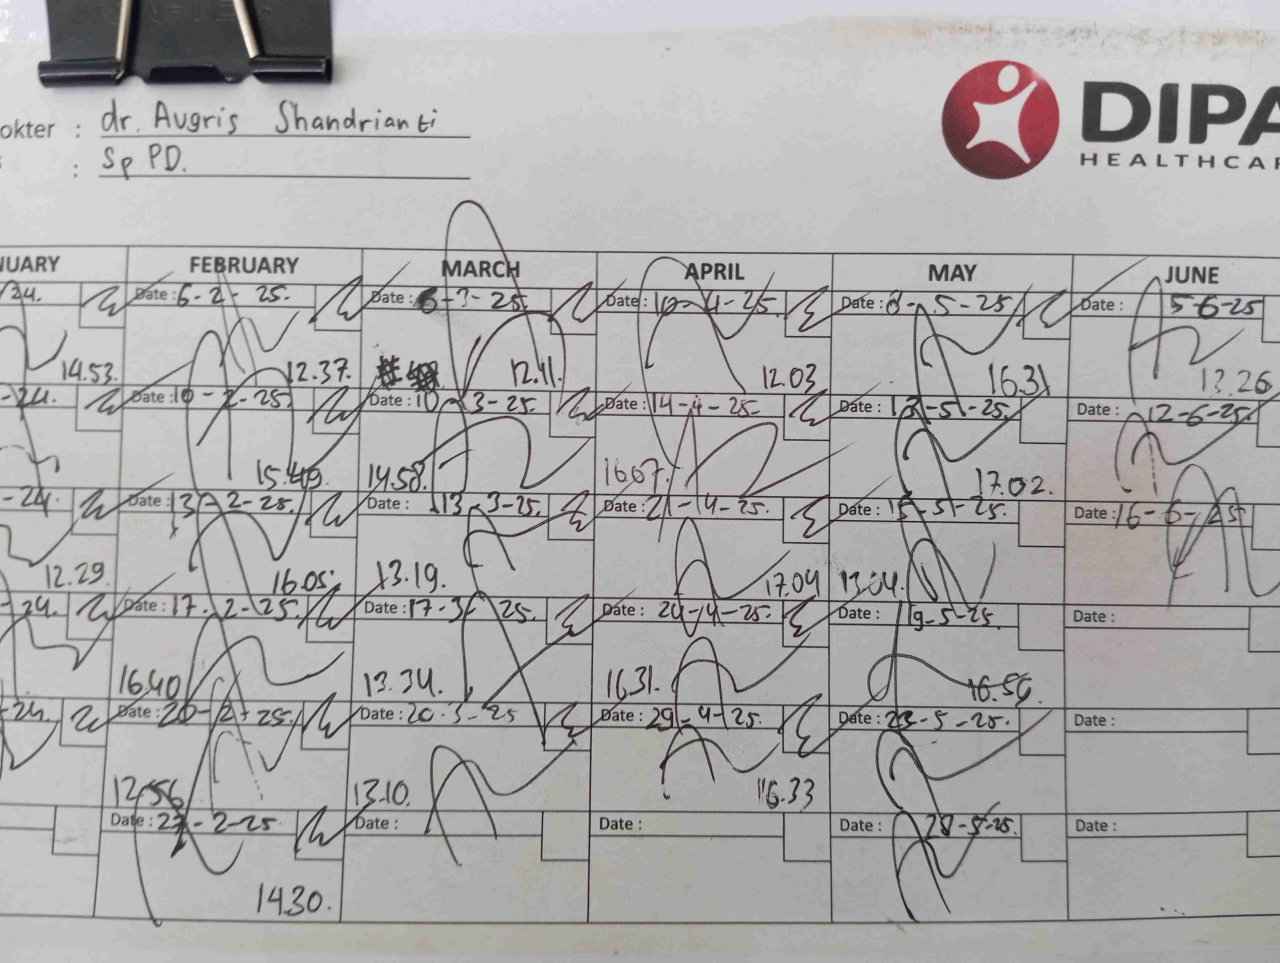 okter : dr. Augris Shandrianti
: Sp PD.
DIPA
HEALTHCAR
NUARY FEBRUARY MARCH APRIL MAY JUNE
24. Date : 6-2-25. Date : 6-3-25. Date : 10-4-25. Date : 8-5-25 Date : 5-6-25
14.53. 12.37. 12.11. 12.03 16.31 12.26
-24. Date : 10-2-25. Date : 10-3-25. Date : 14-4-25. Date : 12-5-25. Date : 12-6-25.
15.49. 14.58. 16.07. 17.02.
-24. Date : 13-2-25. Date : 13-3-25. Date : 21-4-25. Date : 15-5-25. Date : 16-6-25
12.29. 16.05. 13.19. 17.04 13.04.
-24. Date : 17-2-25. Date : 17-3-25. Date : 24-4-25. Date : 19-5-25. Date :
16.40 13.34. 16.31. 16.56.
-24. Date : 20-2-25. Date : 20-3-25 Date : 29-4-25. Date : 23-5-25. Date :
12.56 13.10. 16.33
Date : 27-2-25. Date : Date : Date : 28-5-25. Date :
14.30.